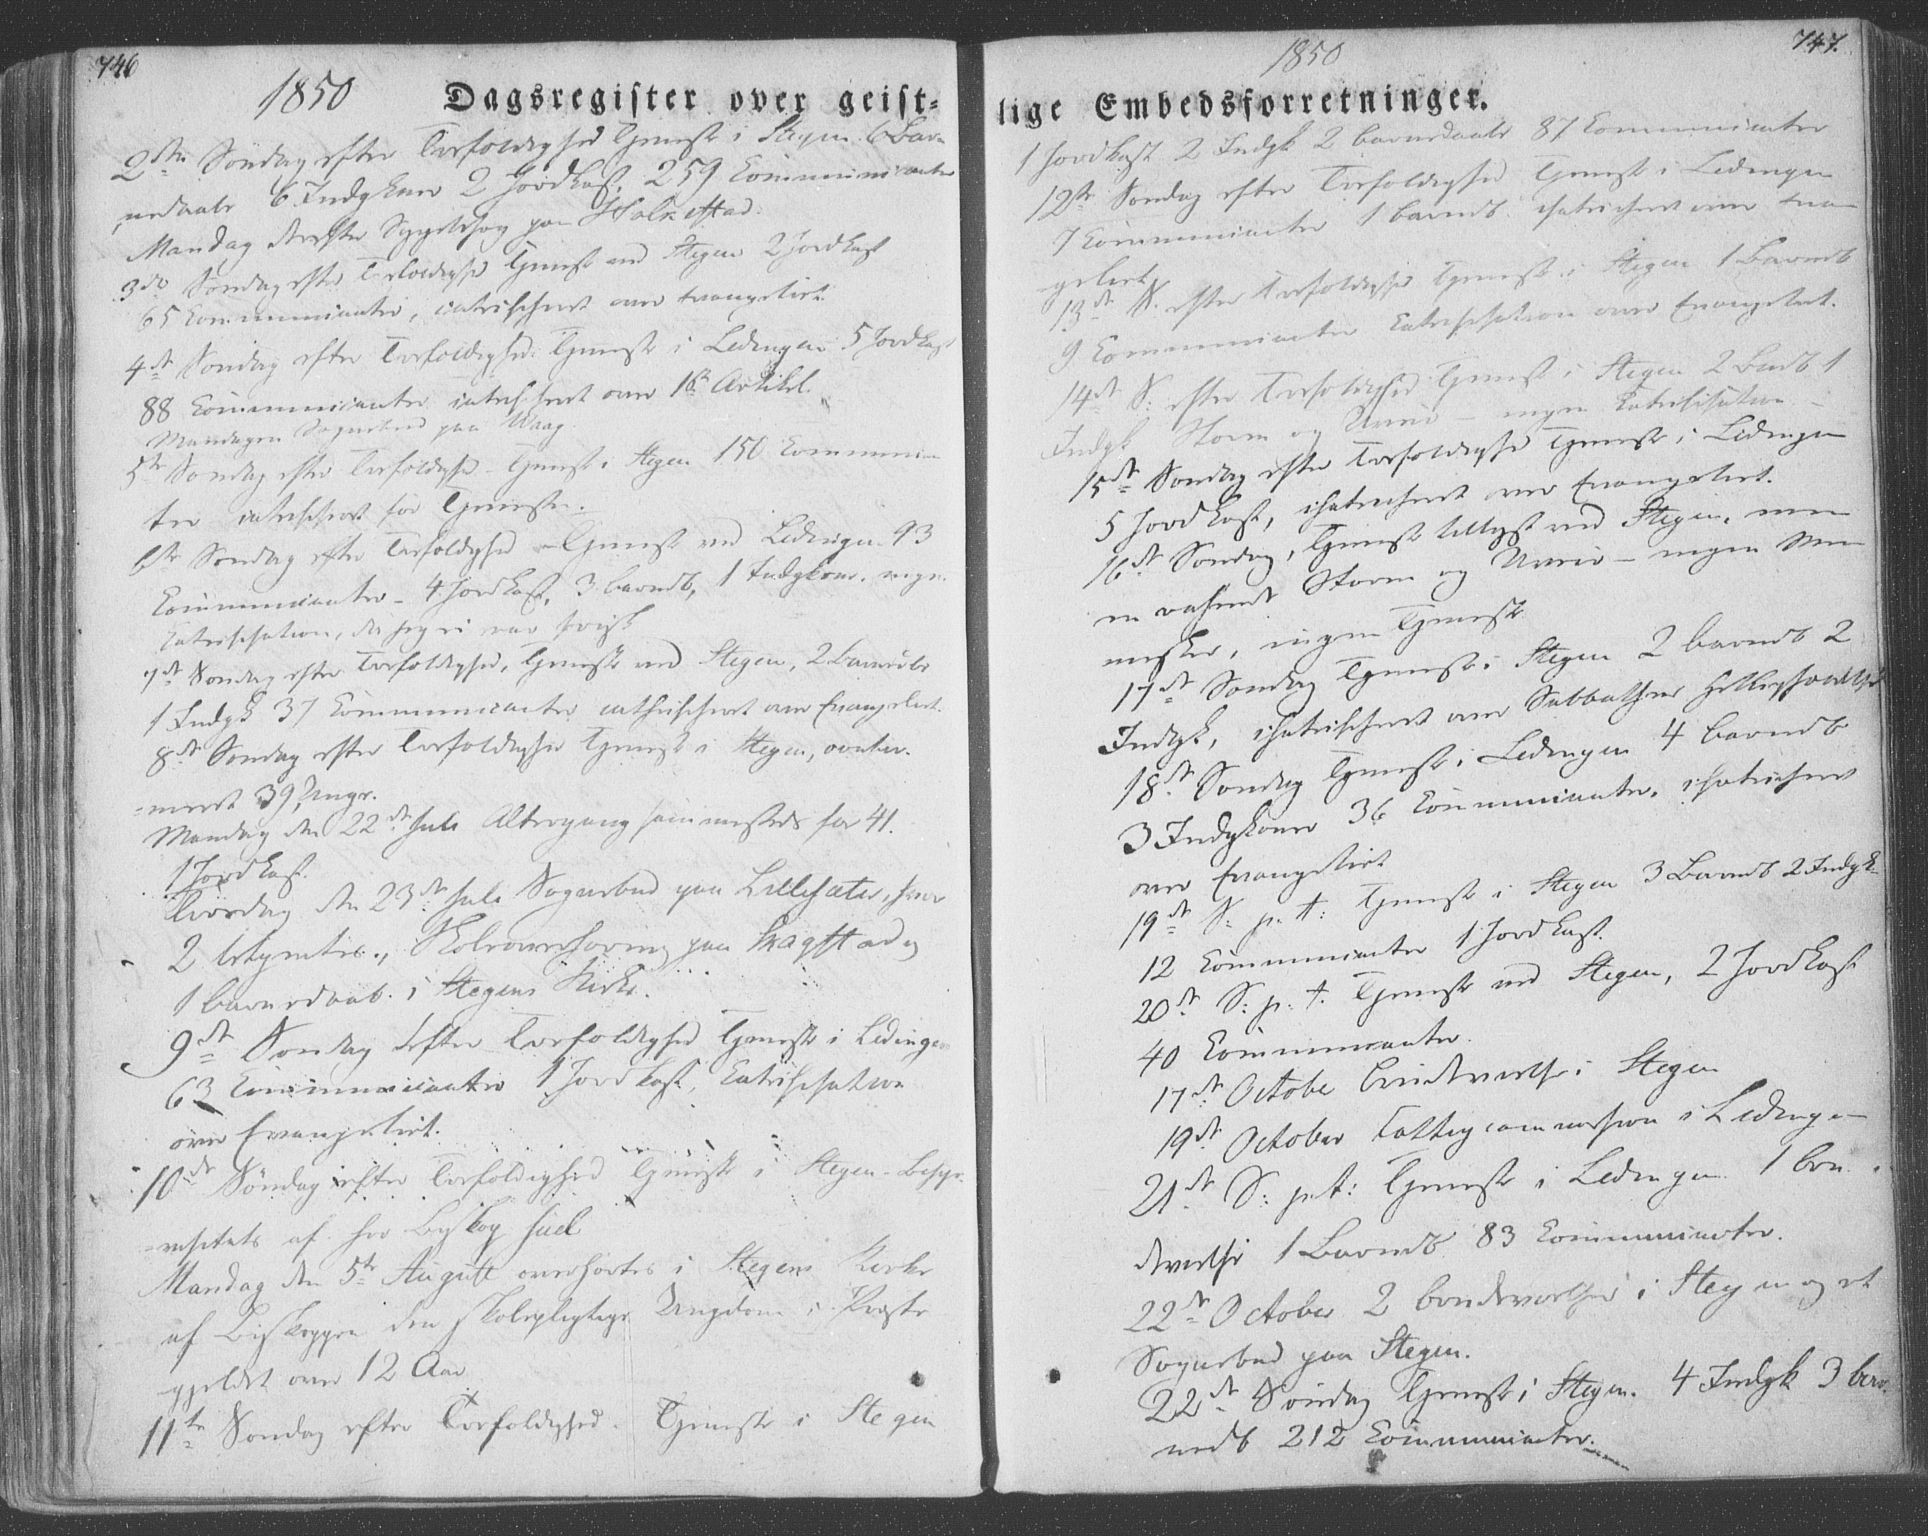 746
1850 Dagsregister over geist-
2den Søndag efter Trefoldighed Tjeneste i Stegen 6 Bar-
nedaab 6 Indgkoner 2 Jordkast. 259 Communicanter
Mandag derefter paa Holkestad.
3die Søndag efter Trefoldighed Tjeneste ved Stegen 2 Jordkast
65 Communicanter, catechiseret over Evangeliet.
4de Søndag efter Trefoldighed Tjeneste i Ledingen 5 Jordkast
88 Communicanter catechiseret over 1ste Artikel.
Mandagen Sognebud paa Waag
5te Søndag efter Trefoldighed Tjeneste i Stegen 150 Communican-
ter catechiseret før Tjenesten.
6te Søndag efter Trefoldighed Tjeneste ved Ledingen 93
Communicanter 4 Jordkast, 3 barnedb, 1 Indgkone. ingen
Catechisation, da jeg ei var frisk
7de Søndag efter Trefoldighed, Tjeneste ved Stegen, 2 barnedb
1 Indgk 37 Communicanter cathechiseret over Evangeliet.
8de Søndag efter Trefoldighed Tjeneste i Stegen, confir-
meret 39 Unge.
Mandag den 22de Juli Altergang sammesteds for 41.
1 Jordkast.
Tirsdag den 23de Juli Sognebud paa Lillesæter, hvor
2 betjentes., Skoleoverhøring paa Skagstad og
1 barnedaab. i Stegens Kirke.
9de Søndag efter Trefoldighed Tjeneste i Ledingen
63 Communicanter 1 Jordkast, Catechisation
over Evangeliet.
10de Søndag efter Trefoldighed Tjeneste i Stegen - Bispe-
visitats af Hr Biskop Juel
Mandag den 5te August overhørtes i Stegens Kirke
af Biskoppen den skolepligtige Ungdom i Præste-
gjeldet over 12 Aar
11te Søndag efter Trefoldighed. Tjeneste i Stegen
747.
1850
lige Embedsforretninger.
1 Jordkast 2 Indgk 2 barnedaab 87 Communicanter
12te Søndag efter Trefoldighed Tjeneste i Ledingen
7 Communicanter 1 barnedb. chatechiseret over Evan-
geliet
13de S. efter Trefoldighed Tjeneste i Stegen 1 Barnedb
9 Communicanter Catechisation over Evangeliet.
14de S: efter Trefoldighed Tjeneste i Stegen 2 Bndb 1
Indgk Storm og Uveir - ingen Catechisation -
15de Søndag efter Trefoldighed Tjeneste i Ledingen
5 Jordkast, chatechiseret over Evangeliet.
16de Søndag, Tjeneste tillyst ved Stegen, men
en rasende Storm og Uveir - ingen Men-
nesker, ingen Tjeneste
17de Søndag Tjeneste i Stegen 2 barnedb 2
Indgk, chatechiseret over Sabbathens Helligholdelse
18de Søndag Tjeneste i Ledingen 4 barnedb
3 Indgkoner 36 Communicanter. chatechiseret
over Evangeliet
19de S. p. t: Tjeneste i Stegen 3 Barnedb 2 Indgk
12 Communicanter 1 Jordkast.
20de S: p. t. Tjeneste ved Stegen, 2 Jordkast
40 Communicanter.
17de October brudevielse i Stegen
19de October Fattigcommission i Ledingen
21de S: p. t: Tjeneste i Ledingen 1 bru-
devielse 1 Barnedb 83 Communicanter.
22de October 2 brudevielser i Stegen og et
Sognebud paa Stegen.
22de Søndag Tjeneste i Stegen. 4 Indgk 3 bar-
nedb 212 Communicanter.